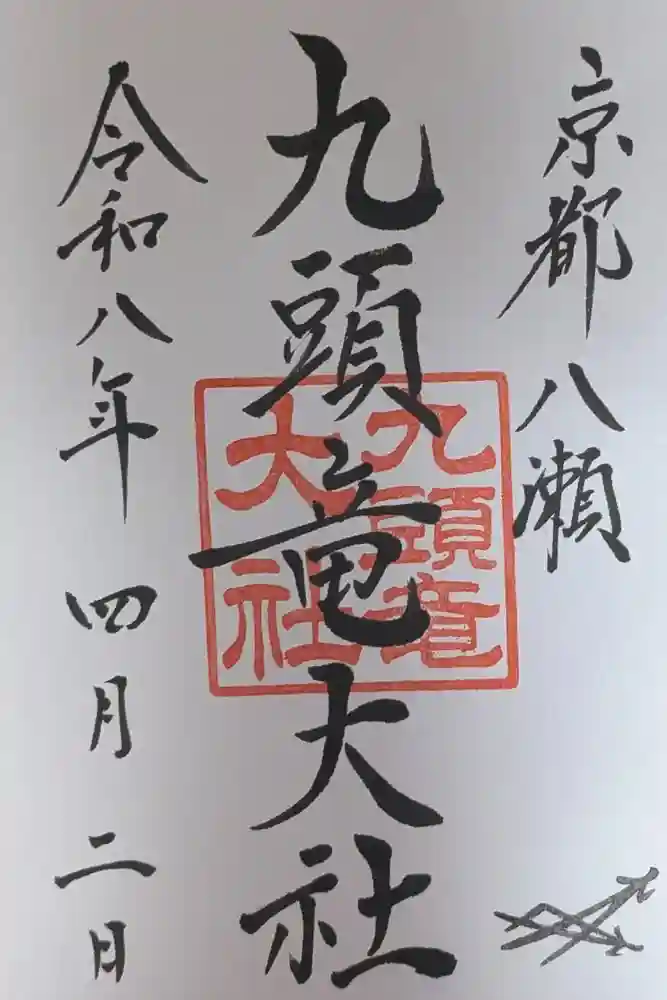 京都八瀬
九頭竜大社
九頭竜
大社
令和八年 四月 二日